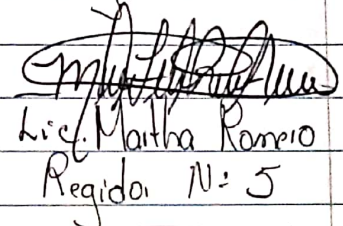 Lic. Martha Romero
Regidor N: 5